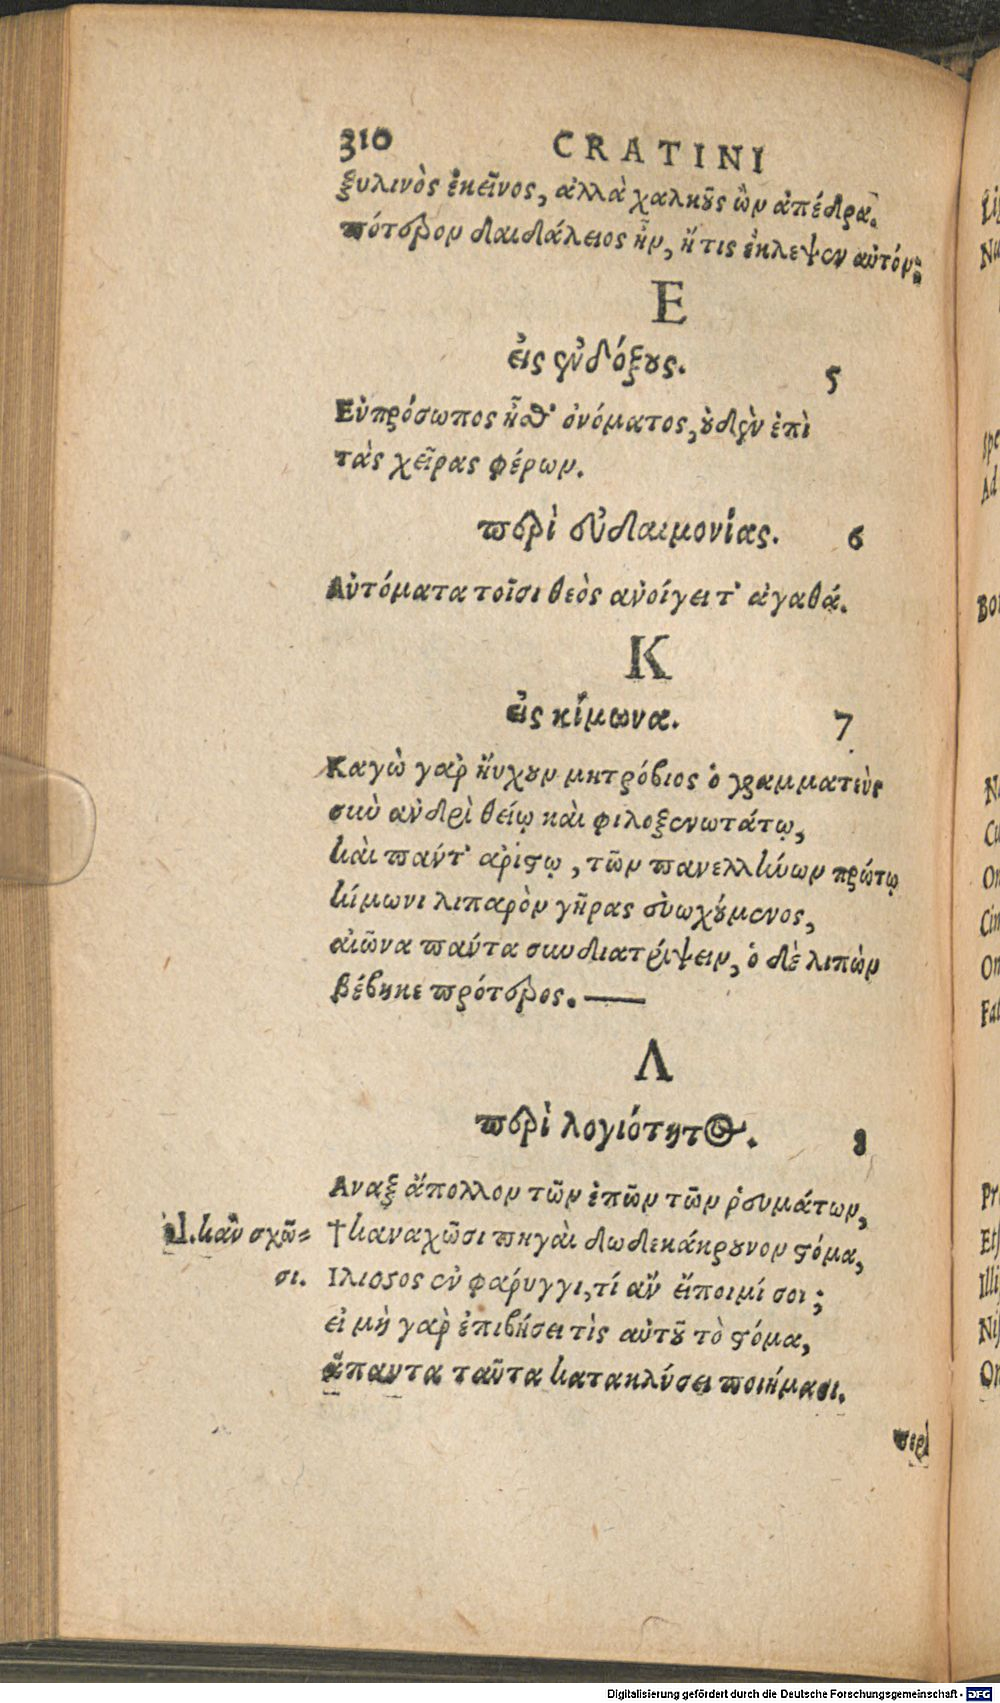 310 CRATINI
ξυλινὸς ἐκεῖνος, ἀλλὰ χαλκοῦς ὢν ἀπέδρα.
πότερον δαιδάλειος ἦν, ἤ τις ἐκλεψεν αὐτόν;
Ε
εἰς εὐδόξους. 5
Εὐπρόσωπος ἦθ' ὀνόματος, οὐδὲν ἐπὶ
τὰς χεῖρας φέρων.
περὶ εὐδαιμονίας. 6
Αὐτόματα τοῖσι θεὸς ἀνοίγει τ' ἀγαθά.
Κ
εἰς κίμωνα. 7
Καγὼ γὰρ ηὔχουν μητρόβιος ὁ γραμματεὺς
σὺν ἀνδρὶ θείῳ καὶ φιλοξενωτάτῳ,
καὶ πάντ' ἀρίστῳ, τῶν πανελλήνων πρώτῳ
κίμωνι λιπαρὸν γῆρας εὐωχούμενος,
αἰῶνα πάντα συνδιατρίψειν, ὁ δὲ λιπὼν
βέβηκε πρότερος. —
Λ
περὶ λογιότητος. 8
Αναξ ἄπολλον τῶν ἐπῶν τῶν ῥευμάτων,
†καναχῶσι πηγαὶ δωδεκάκρουνον στόμα,
al. καὶν σχῶ-
σι.
Ιλισσος ἐν φάρυγγι, τί ἂν εἴποιμί σοι;
εἰ μὴ γὰρ ἐπιβήσει τὶς αὐτοῦ τὸ στόμα,
ἅπαντα ταῦτα κατακλύσει ποιήμασι.
περὶ
Digitalisierung gefördert durch die Deutsche Forschungsgemeinschaft - DFG